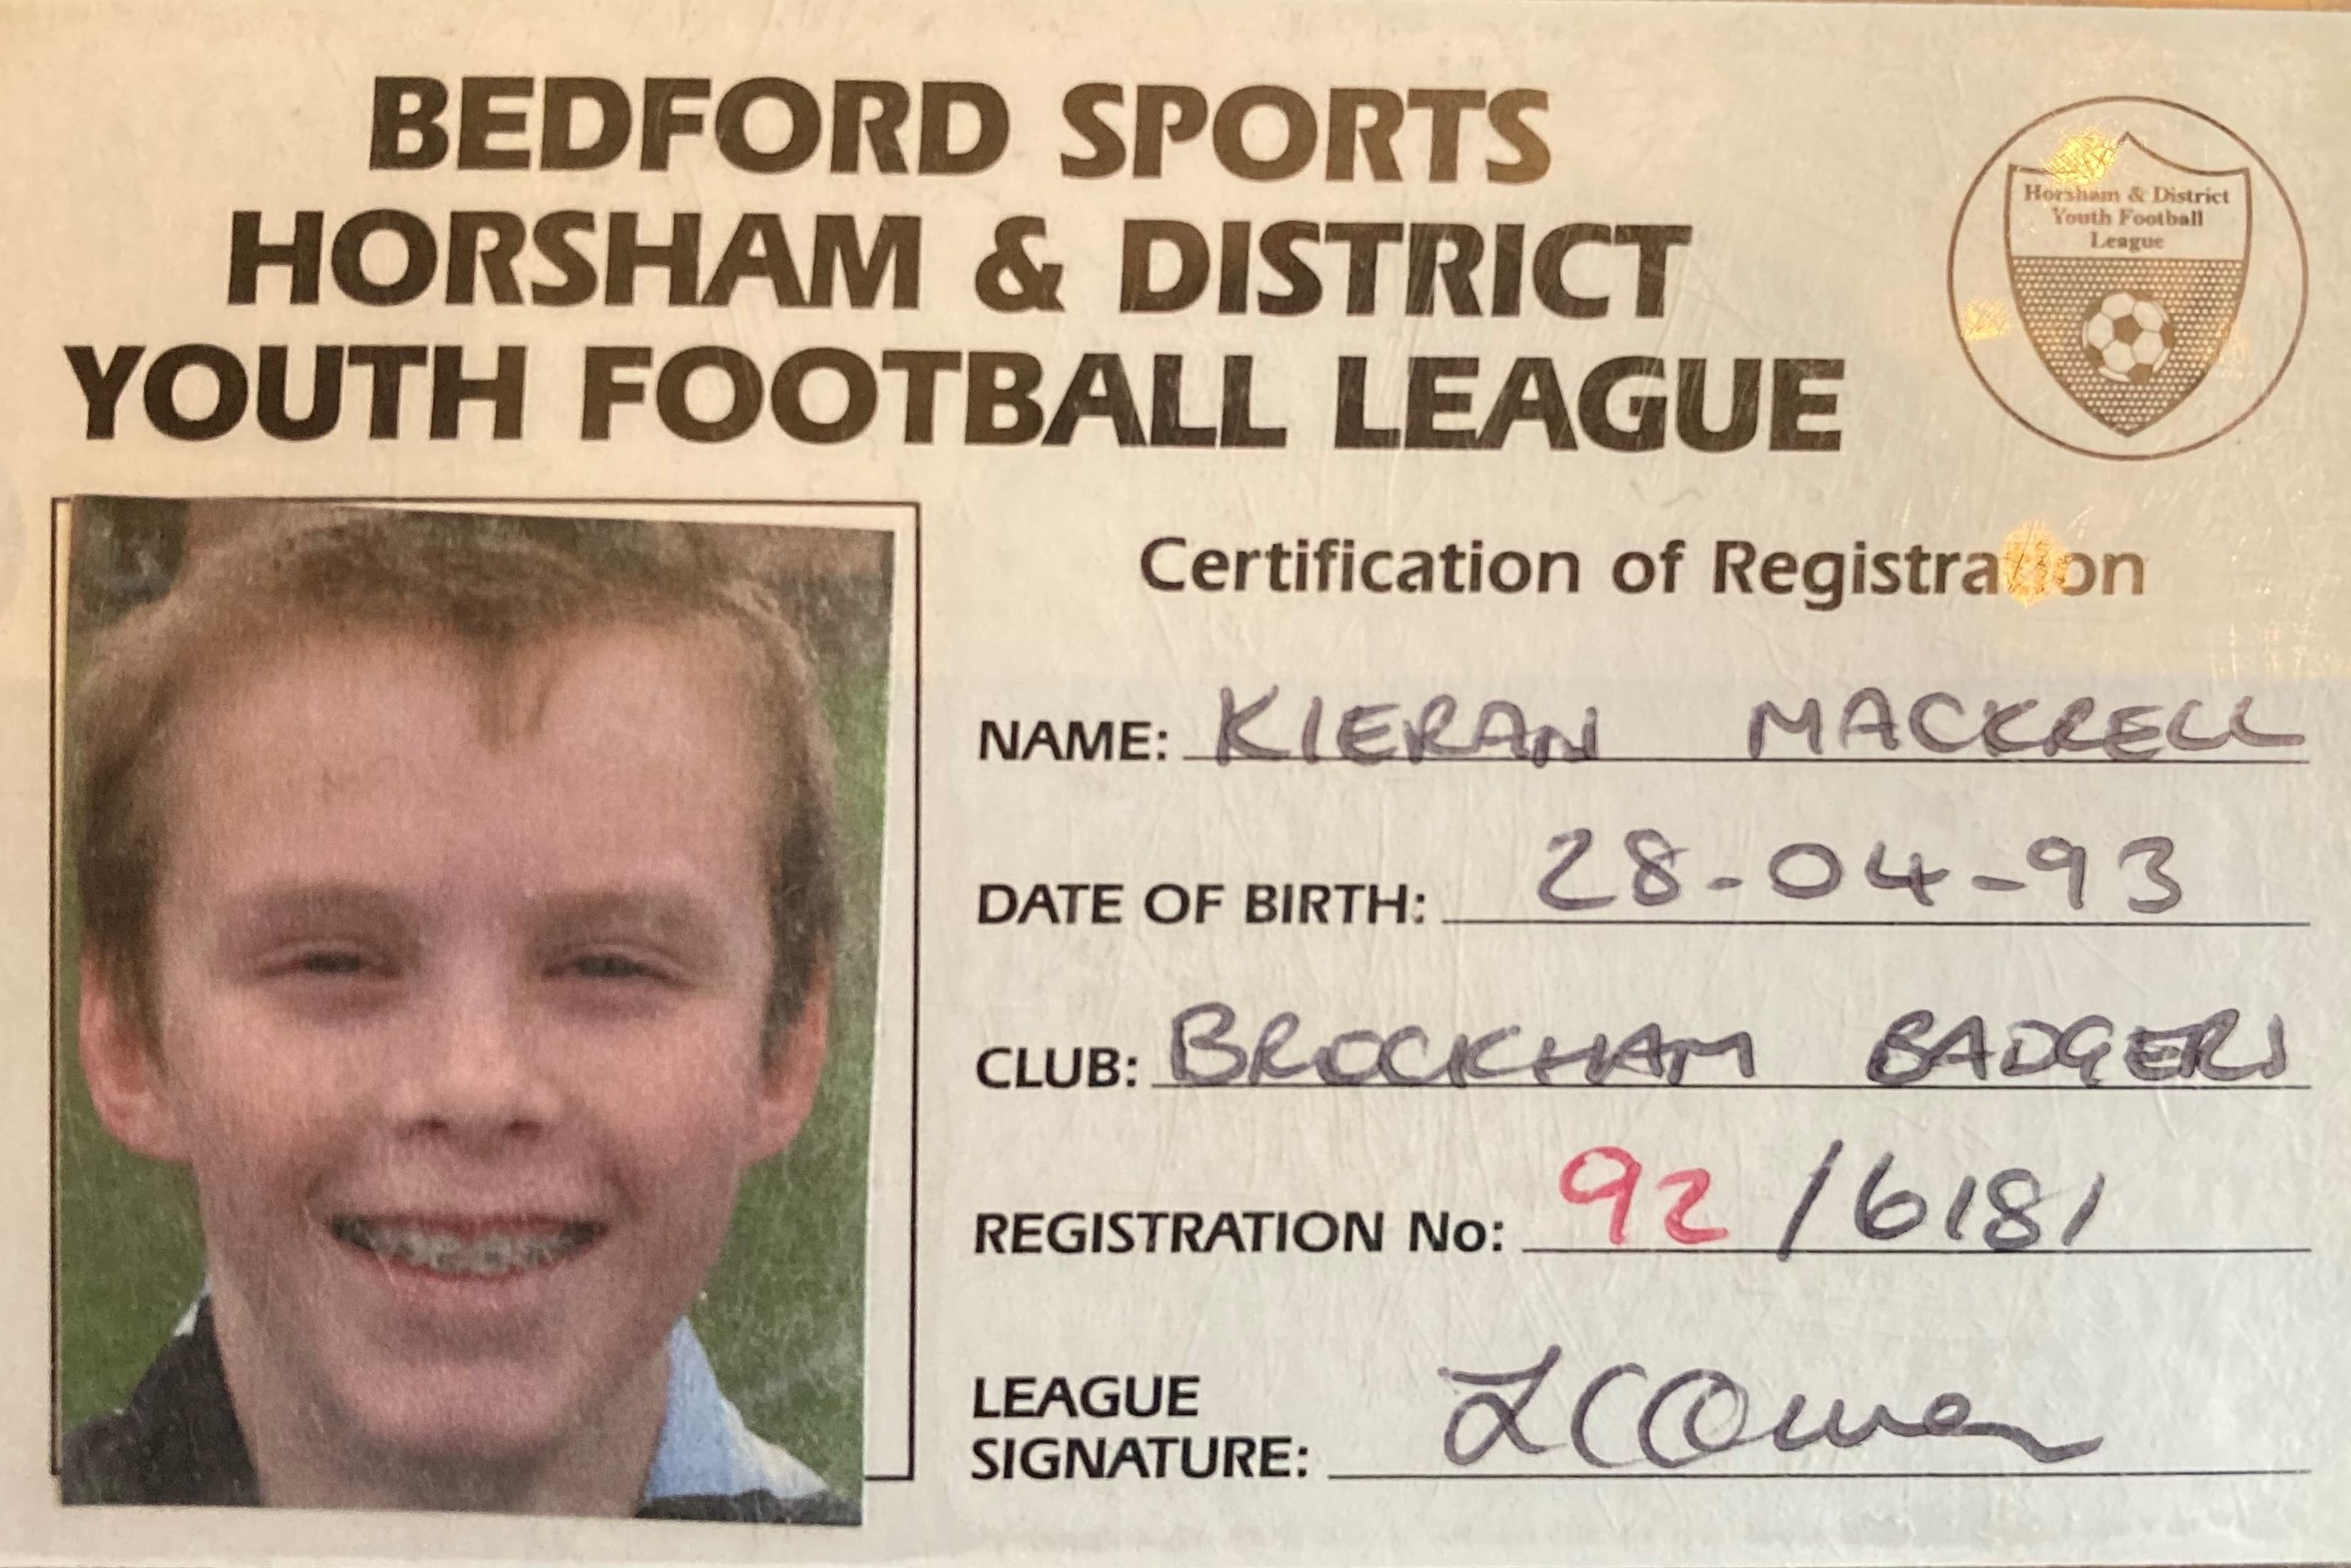 BEDFORD SPORTS
HORSHAM & DISTRICT
YOUTH FOOTBALL LEAGUE
Horsham & District
Youth Football
League
Certification of Registration
NAME: KIERAN MACKRELL
DATE OF BIRTH: 28-04-93
CLUB: BROCKHAM BADGERS
REGISTRATION No: 92/6181
LEAGUE
SIGNATURE: